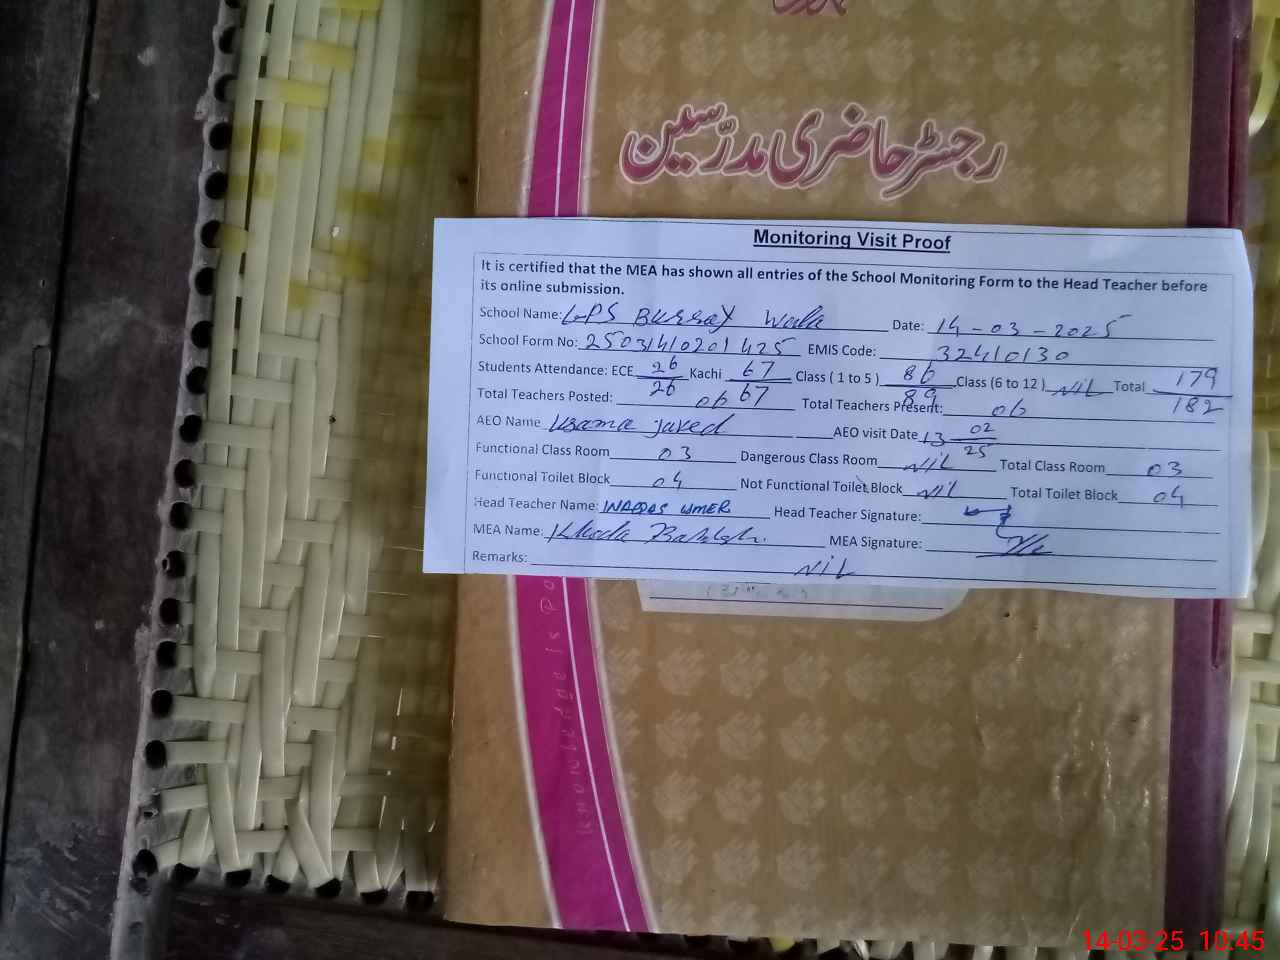 رجسٹر حاضری مدرّسین
Monitoring Visit Proof
It is certified that the MEA has shown all entries of the School Monitoring Form to the Head Teacher before
its online submission.
School Name: GPS Bussay Wala Date: 14-03-2025
School Form No: 25031410201425 EMIS Code: 32410130
Students Attendance: ECE 26/26 Kachi 67/67 Class ( 1 to 5 ) 86/89 Class (6 to 12 ) NIL Total 179/182
Total Teachers Posted: 06 Total Teachers Present: 06
AEO Name Usama javed AEO visit Date 13 02/25
Functional Class Room 03 Dangerous Class Room NIL Total Class Room 03
Functional Toilet Block 04 Not Functional Toilet Block NIL Total Toilet Block 04
Head Teacher Name: WAQAS UMER Head Teacher Signature:
MEA Name: Khuda Bakhsh. MEA Signature:
Remarks: NIL
KNOWLEDGE IS PO
14-03-25 10:45